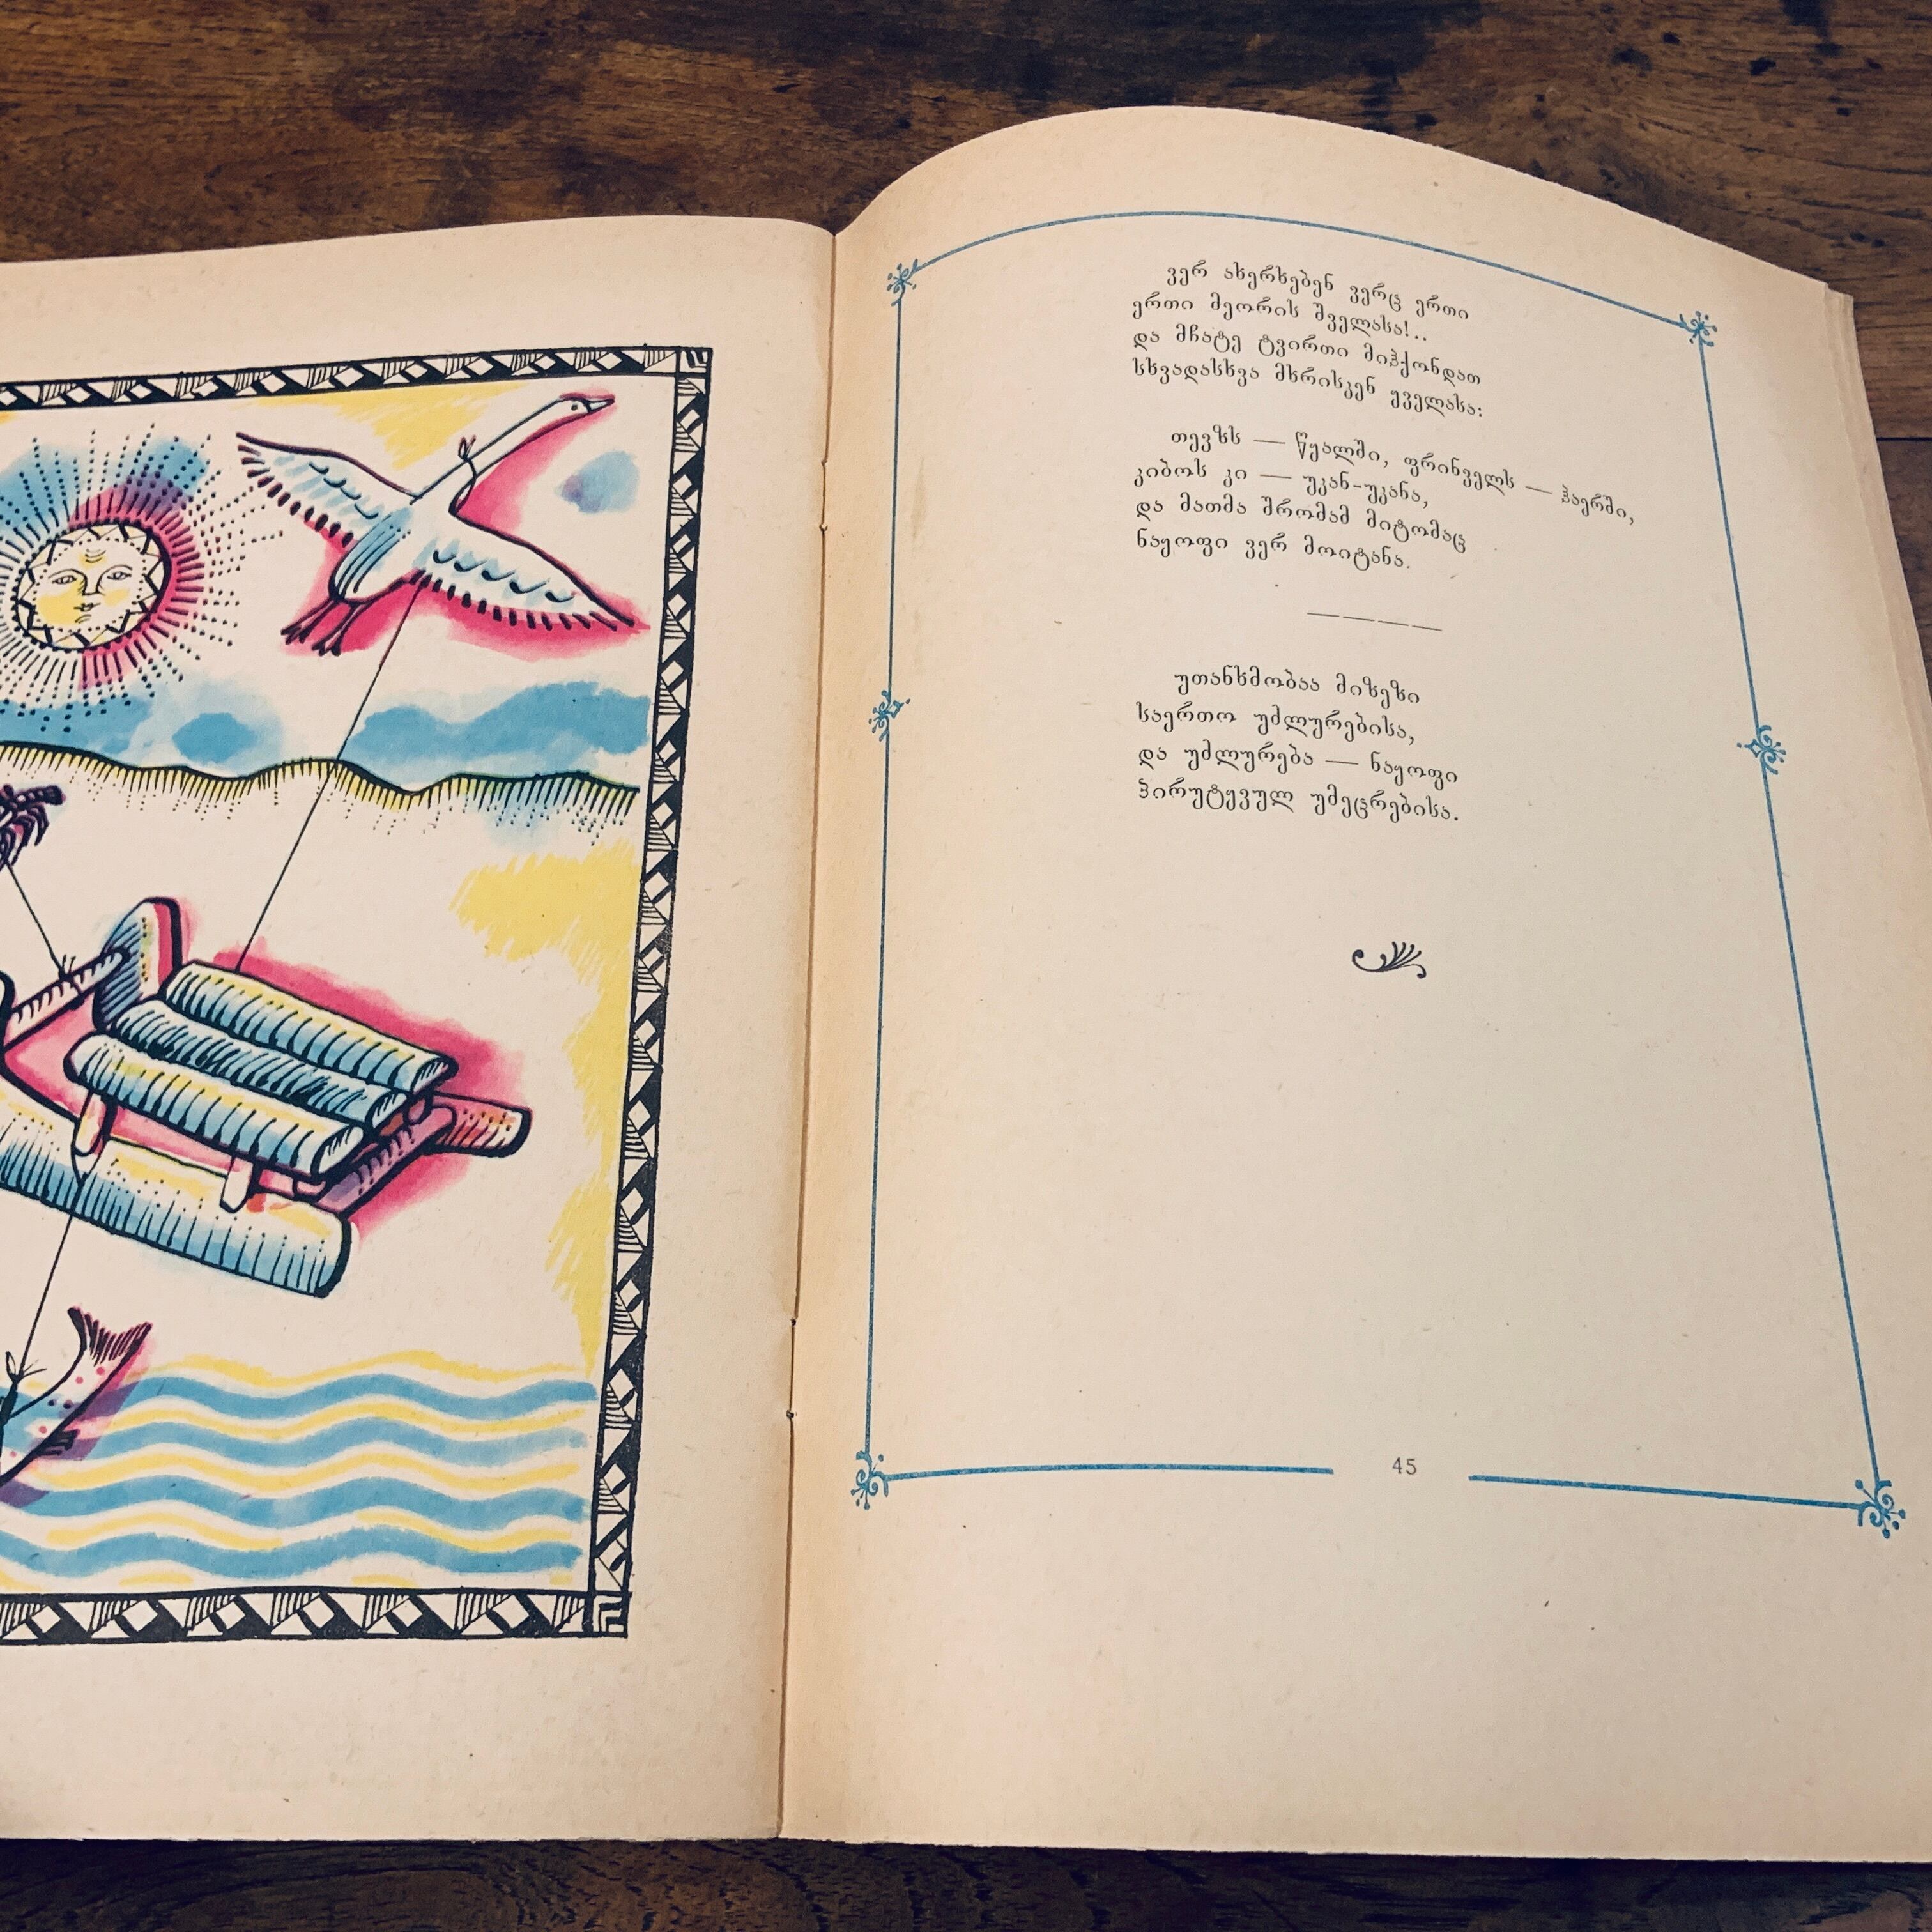 ვერ ახერხებენ ვერც ერთი
ერთი მეორის შველასა!..
და მჩატე ტვირთი მიჰქონდათ
სხვადასხვა მხრისკენ ყველასა:
თევზს — წყალში, ფრინველს — ჰაერში,
კიბოს კი — უკან-უკანა,
და მათმა შრომამ მიტომაც
ნაყოფი ვერ მოიტანა.
უთანხმობაა მიზეზი
საერთო უძლურებისა,
და უძლურება — ნაყოფი
პირუტყვულ უმეცრებისა.
45